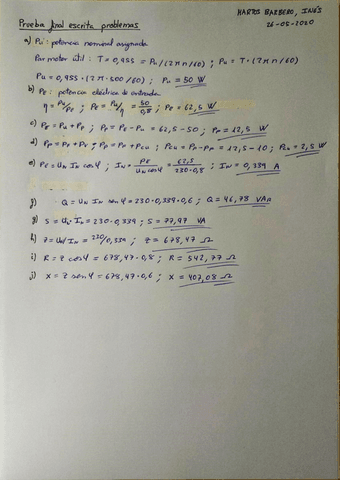 MARTOS BARBERO, INÉS
26-05-2020
Prueba final escrita problemas
a) Pu: potencia nominal asignada
Par motor útil: T = 0,955 = Pu/(2πn/60) ; Pu = T·(2πn/60)
Pu = 0,955·(2π·500/60) ; Pu = 50 W
b) PE: potencia eléctrica de entrada
η = Pu/PE ; PE = Pu/η = 50/0,8 ; PE = 62,5 W
c) PE = Pu + Pp ; Pp = PE - Pu = 62,5 - 50 ; Pp = 12,5 W
d) Pp = PF + PV + PCu ; PCu = Pp - 12,5 - 10 ; = 2,5 W
e) PE = UN IN cos φ ; IN = PE/UN cos φ = 62,5/230·0,8 ; IN = 0,339 A
Q = UN IN sen φ = 230·0,339·0,6 ; Q = 46,78 VAR
g) S = UN·IN = 230·0,339 ; S = 77,97 VA
h) Z = UN/IN = 230/0,339 ; Z = 678,47 Ω
i) R = Z cos φ = 678,47·0,8 ; R = 542,77 Ω
j) X = Z sen φ = 678,47·0,6 ; X = 407,08 Ω